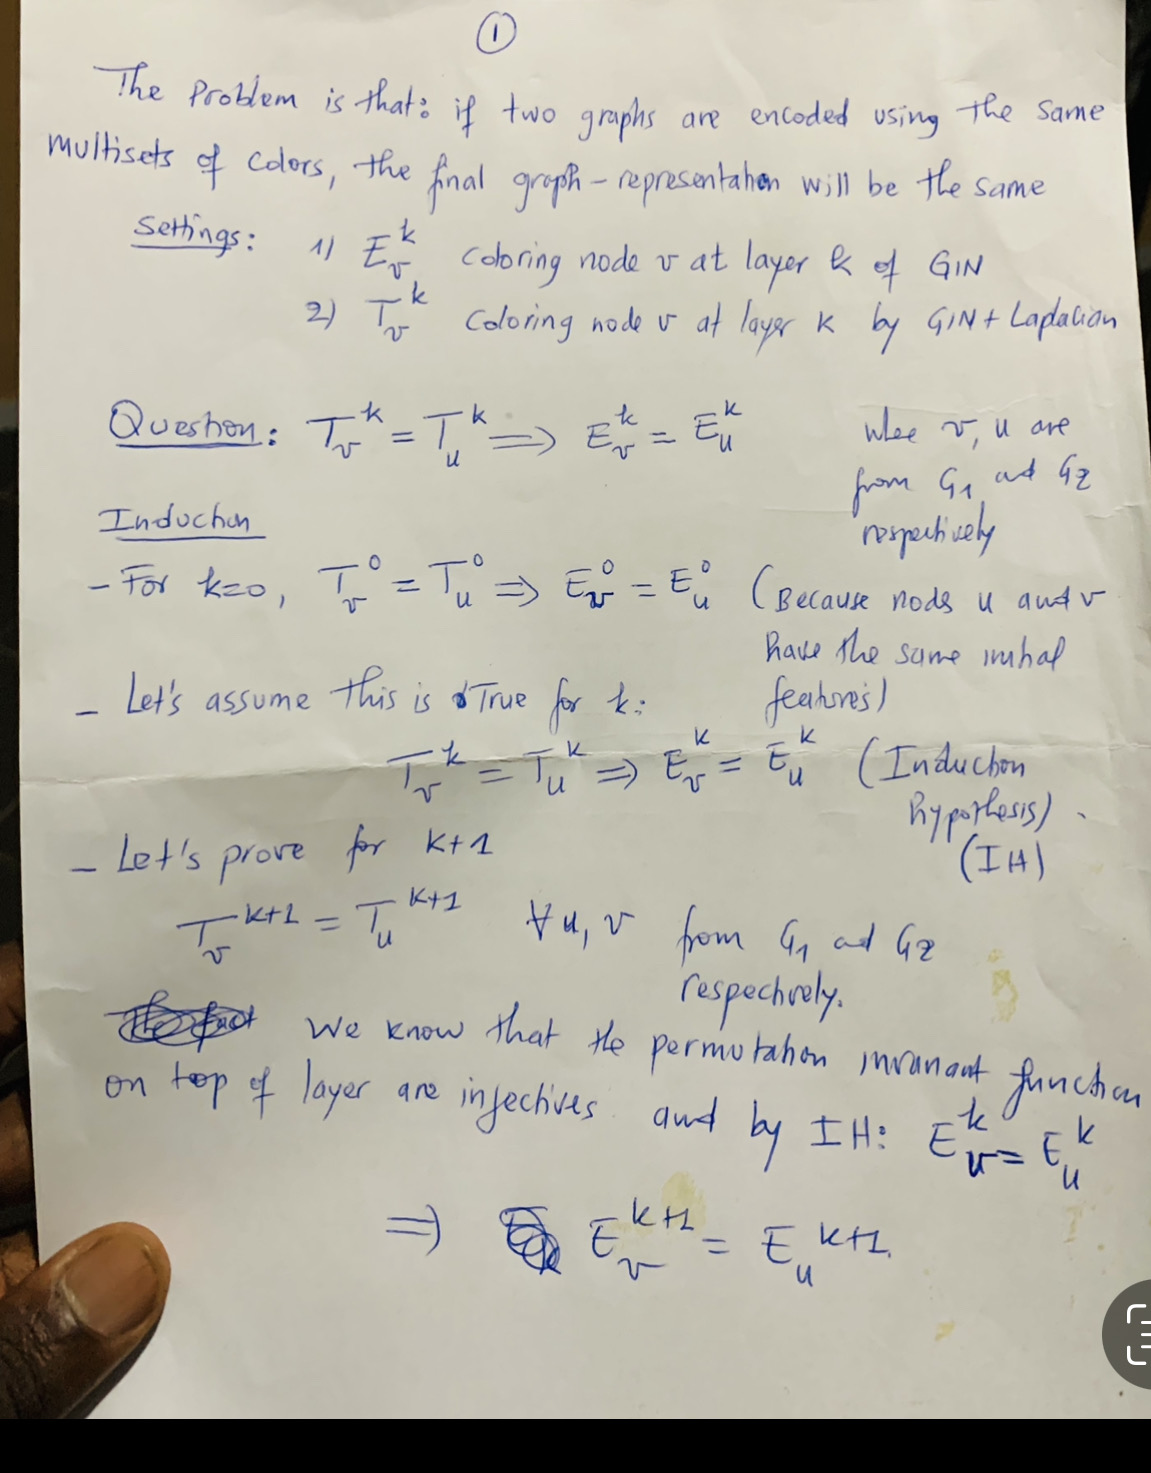 1
The Problem is that: if two graphs are encoded using the same
multisets of colors, the final graph-representation will be the same
Settings: 1) E_v^k coloring node v at layer k of GIN
2) T_v^k coloring node v at layer k by GIN + Laplacian
Question: T_v^k = T_u^k ⟹ E_v^k = E_u^k whee v, u are
from G1 and G2
respectively
Induction
- For k=0, T_v^0 = T_u^0 ⟹ E_v^0 = E_u^0 (Because nodes u and v
have the same initial
features)
- Let's assume this is True for k:
T_v^k = T_u^k ⟹ E_v^k = E_u^k (Induction
hypothesis).
(IH)
- Let's prove for k+1
T_v^{k+1} = T_u^{k+1} ∀ u, v from G1 and G2
respectively.
We know that the permutation invariant function
on top of layer are injectives and by IH: E_v^k = E_u^k
⟹ E_v^{k+1} = E_u^{k+1}.